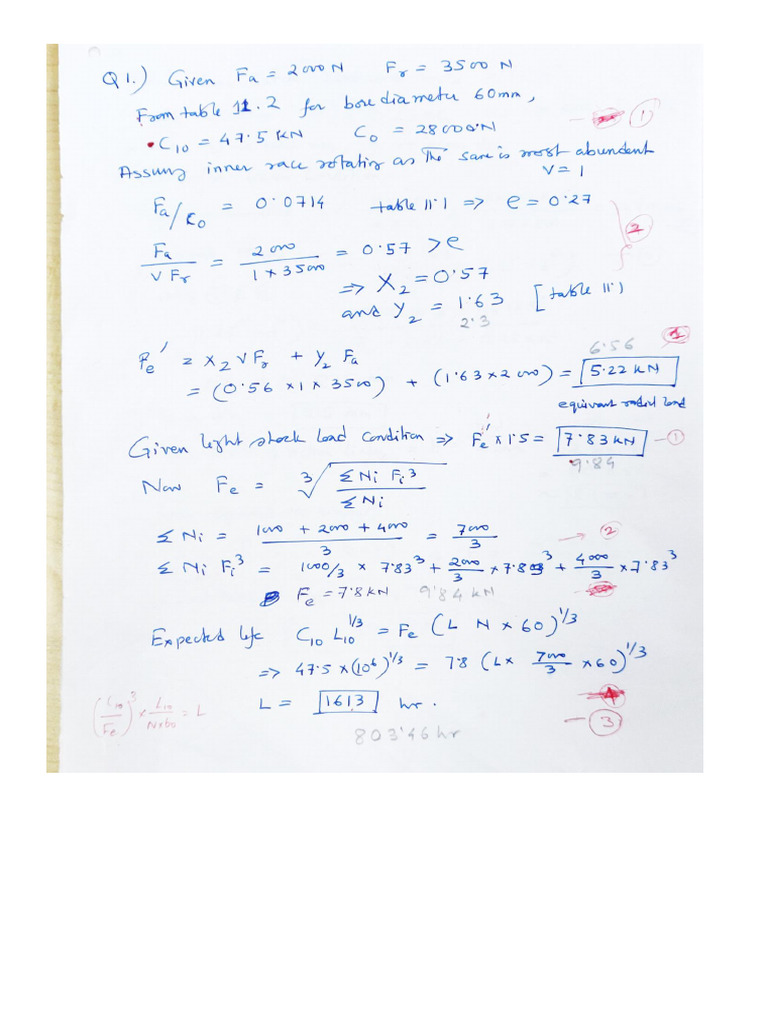 Q1.) Given Fa = 2000N Fr = 3500 N
From table 11.2 for bore diameter 60mm,
• C10 = 47.5 KN C0 = 28000N 1
Assuming inner race rotating as the same is most abundent
V = 1
Fa/C0 = 0.0714 table 11.1 => e = 0.27
Fa / V Fr = 2000 / 1 × 3500 = 0.57 > e 2
=> X2 = 0.57
and Y2 = 1.63 [table 11.1
2.3
6.56 1
Fe' = X2 V Fr + Y2 Fa
= (0.56 × 1 × 3500) + (1.63 × 2000) = 5.22 KN
equivant radial load
Given light shock load condition => Fe' × 1.5 = 7.83 KN — 1
9.84
Now Fe = 3√(Σ Ni Fi^3 / Σ Ni)
Σ Ni = (1000 + 2000 + 4000) / 3 = 7000 / 3 → 2
Σ Ni Fi^3 = 1000/3 × 7.83^3 + 2000/3 × 7.83^3 + 4000/3 × 7.83^3
Fe = 7.8 KN 9.84 KN
Expected life C10 L10^1/3 = Fe (L N × 60)^1/3
=> 47.5 × (10^6)^1/3 = 7.8 (L × 7000/3 × 60)^1/3
(C10/Fe)^3 × L10/N×60 = L L = 1613 hr. 4
— 3
803.46 hr